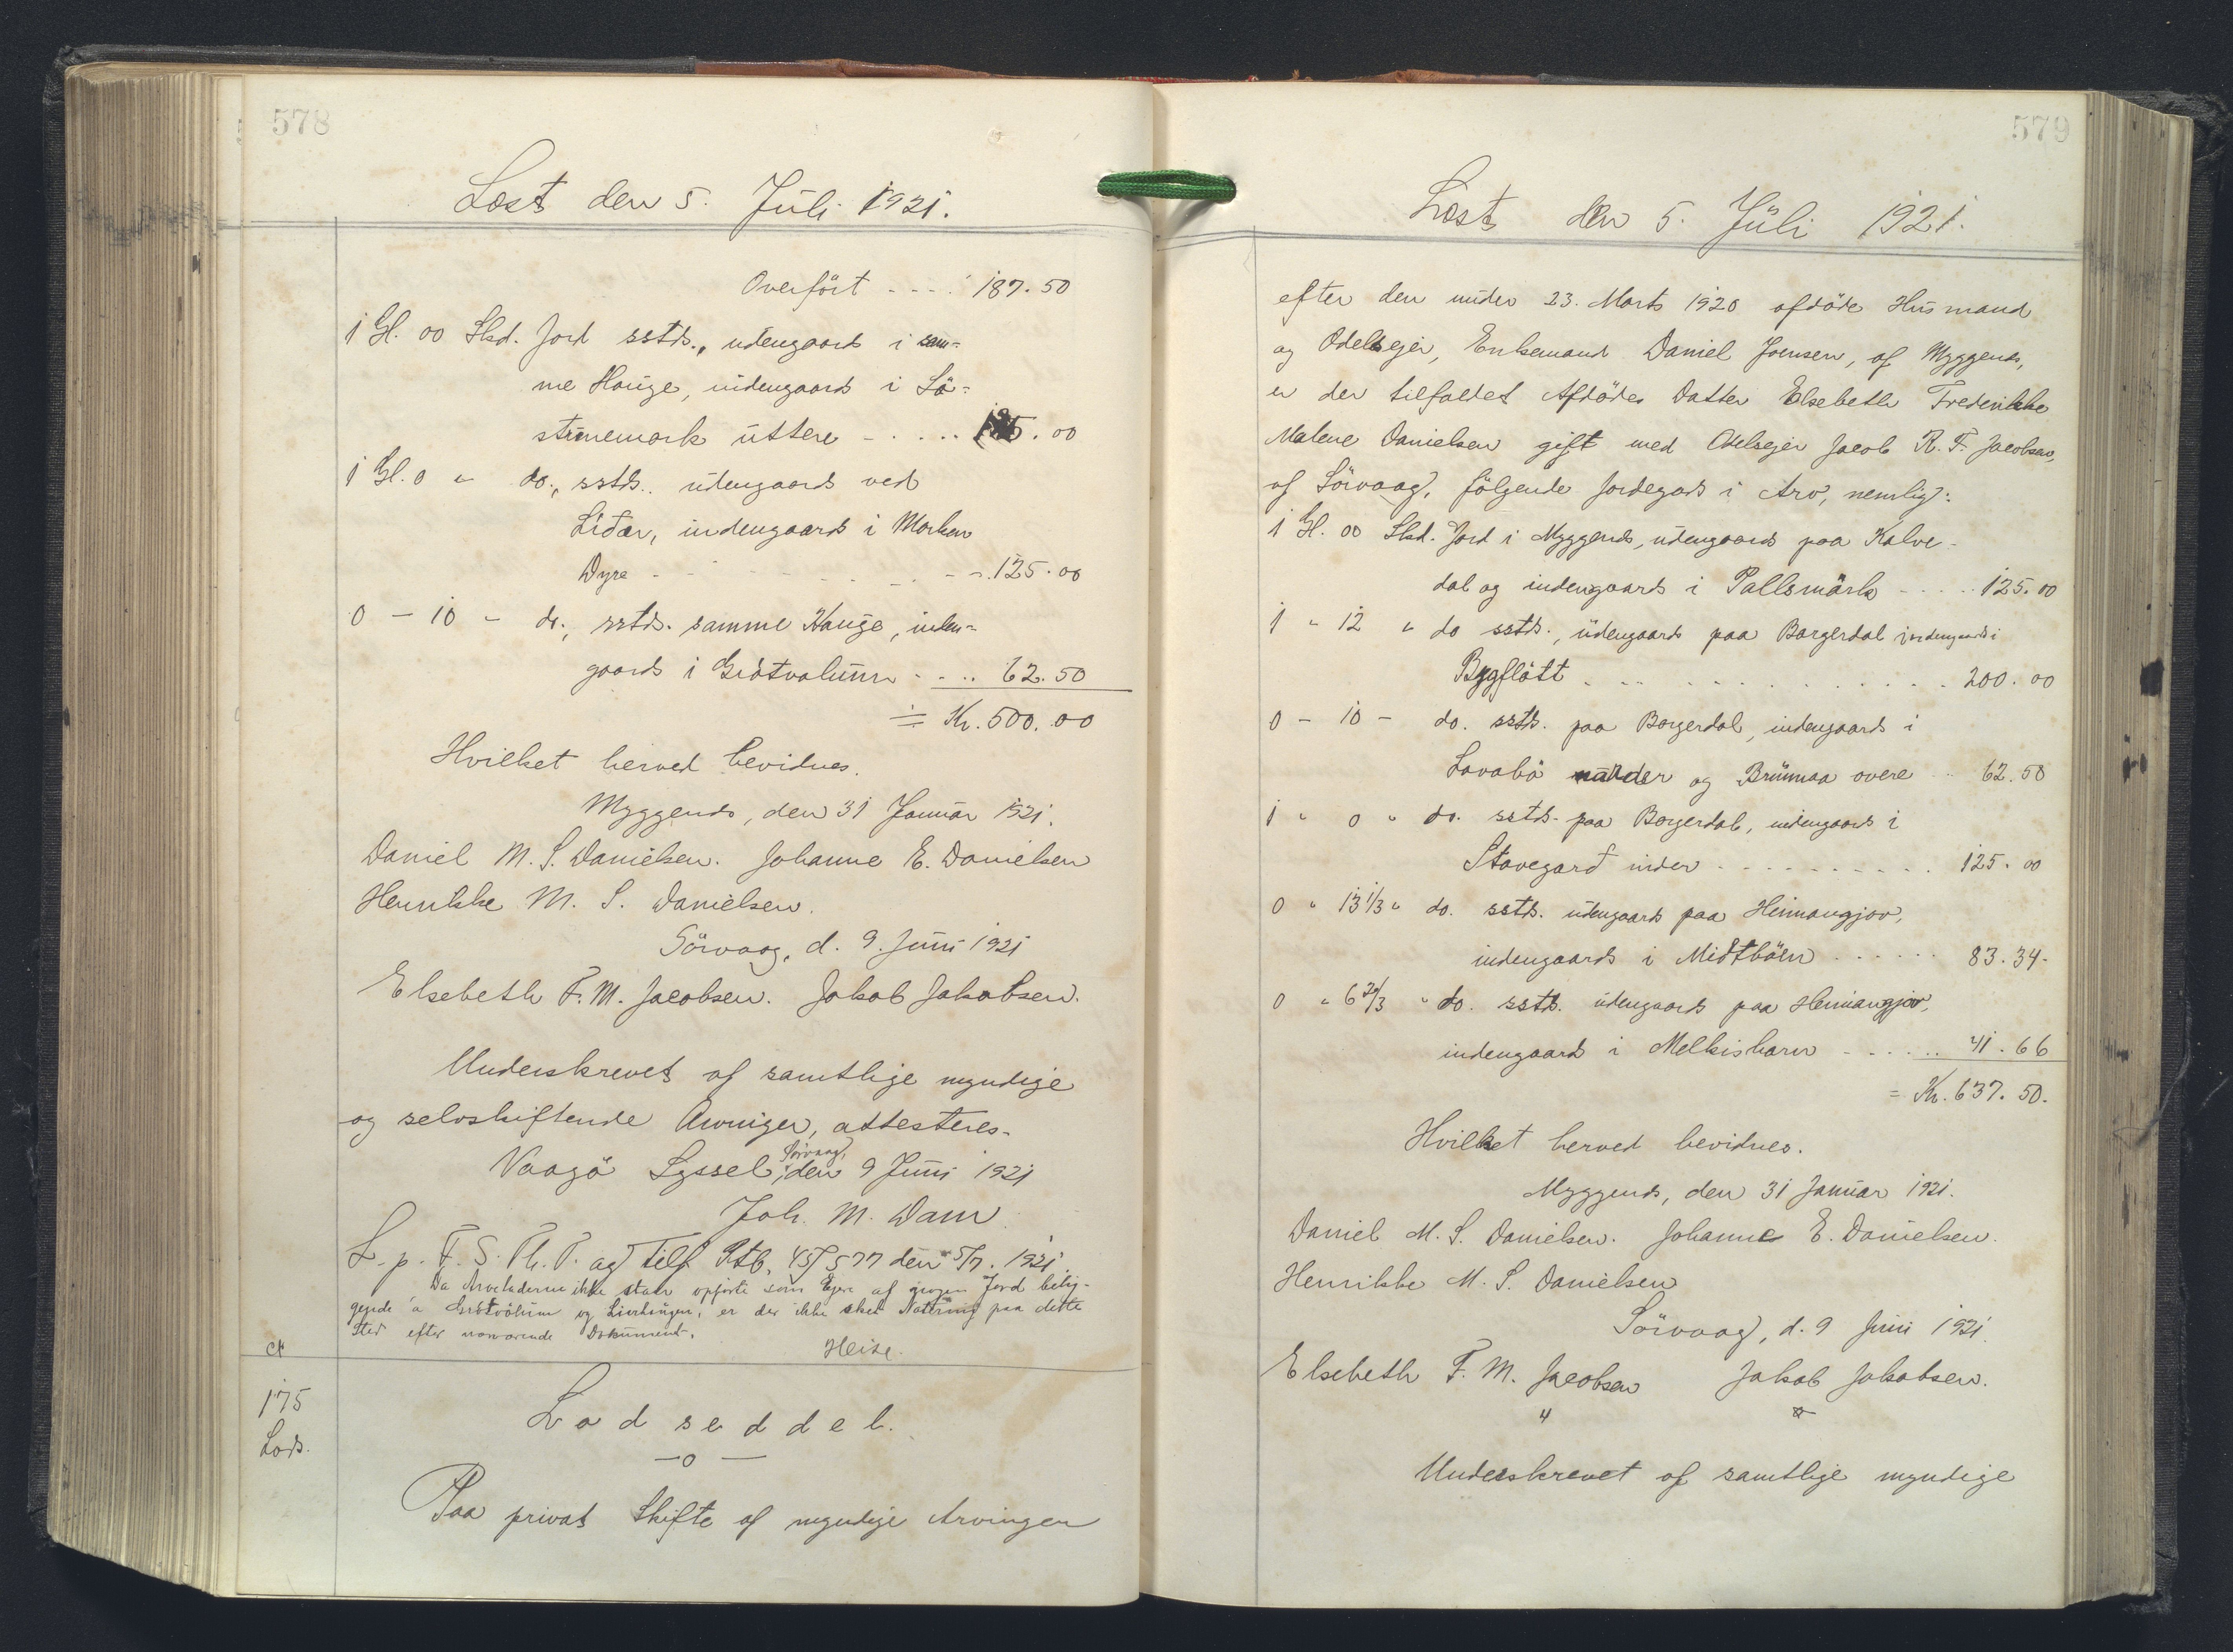 578
Læst den 5. Juli 1921.
Overfört - - - - 187.50
1 Gl. 00 Skd. Jord sstds., udengaards i sam=
me Hauge, indengaards i Lö=
stunemark úttere - . . . . 125.00
1 Gl. 0 " do., sstds. udengaards ved
Lidar, indengaards i Morken
Dyre - - - - - - - 125.00
0 - 10 - do., sstds. samme Hauge, inden=
gaards i Grótvolum - . . . 62.50
= Kr. 500.00
Hvilket herved bevidnes.
Myggenæs, den 31 Januar 1921.
Daniel M. S. Danielsen. Johanne E. Danielsen
Henrikke M. S. Danielsen.
Sörvaag, d. 9. Juni 1921
Elsebeth F. M. Jacobsen. Jakob Jakobsen.
Underskrevet af samtlige myndige
og selvskiftende Arvinger, attesteres.
Sörvaag,
Vaagö Syssel, den 9 Juni 1921
Joh. M. Dam
L. p. F. S. Th. P. ag Tilf. Ptb. 45/577 den 5/7. 1921.
Da Arveladeren ikke staar opfört som Ejer af nogen Jord belig-
gende á Grótvölum og , er der ikke sket Notering paa dette
Sted efter nærværende Dokument.
Heise.
175
Lods.
Lodseddel.
—o—
Paa privat Skifte af myndige Arvinger
579
Læst den 5. Juli 1921.
efter den under 23. Marts 1920 afdöde Husmand
og Odelsejer, Enkemand Daniel Joensen, af Myggenæs,
er der tilfaldet Afdödes Datter Elsebeth Frederikke
Malene Danielsen gift med Odelsejer Jacob R. F. Jacobsen,
af Sörvaag, fölgende Jordegods i Arv, nemlig:
1 Gl. 00 Skd. Jord i Myggenæs, udengaards paa Kalve-
dal og indengaards i Pallsmärk - - - - - 125.00
1 " 12 " do sstds., udengaards paa Borgerdal indengaards i
Bygflótt . . . . . . . . . . . 200.00
0 - 10 - do. sstds. paa Borgerdal, indengaards i
Lavabö närder og Brunnaa overe . . 62.50
1 " 0 " do. sstds. paa Borgerdal, indengaards i
Stavegard inder - - - - - - - - - 125.00
0 " 13 1/3 " do. sstds. udengaards paa Heimangjov,
indengaards i Midtböen - - - - - - 83.34.
0 " 6 2/3 " do. sstds. udengaards paa Heimangjov,
indengaards i Melkisharn - - - - - - 41.66
= Kr. 637.50.
Hvilket herved bevidnes.
Myggenæs, den 31 Januar 1921.
Daniel M. S. Danielsen. Johanne E. Danielsen.
Henrikke M. S. Danielsen
Sörvaag, d. 9 Juni 1921.
Elsebeth F. M. Jacobsen Jakob Jakobsen.
Underskrevet af samtlige myndige